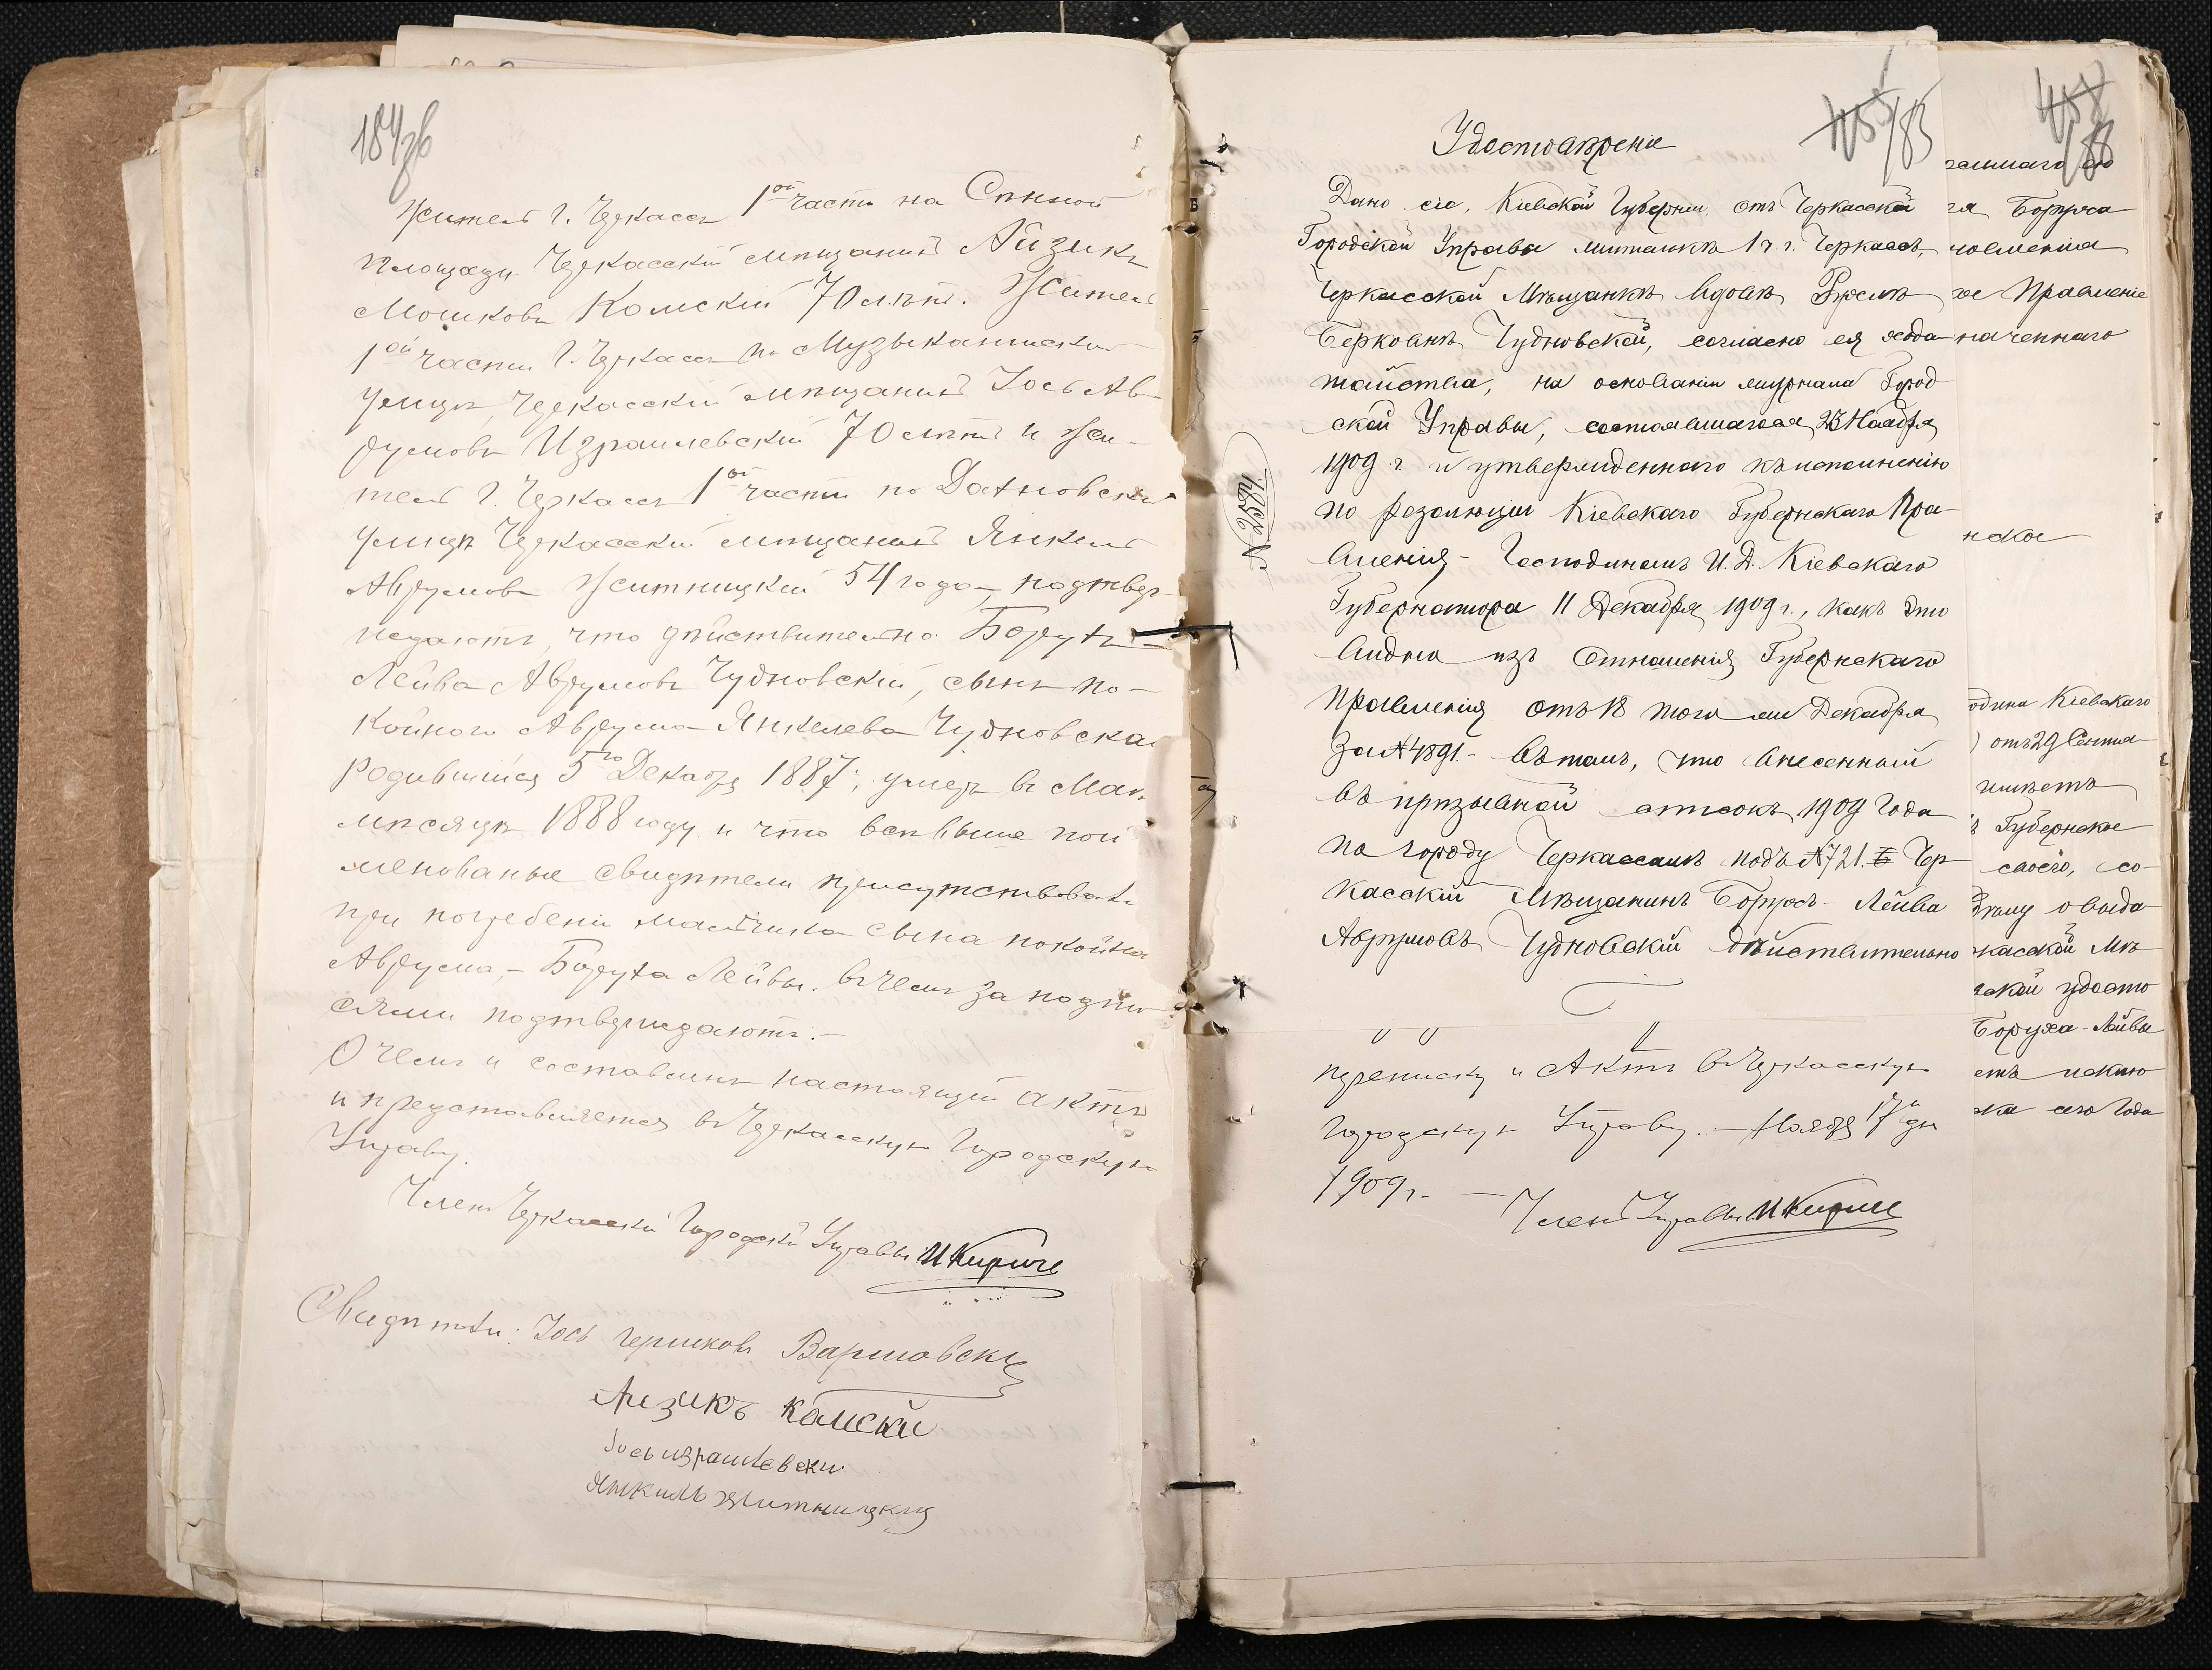 184 об
Житель г. Черкассъ 1ой части на Сѣнной
площади Черкасскій мѣщанинъ Айзикъ
Мошковъ Камскій 70 лѣтъ. Житель
1ой части г. Черкассъ по Музыкантской
улицѣ, Черкасскій мѣщанинъ Іось Ав-
румовъ Израилевскій 70 лѣтъ и жи-
тель г. Черкассъ 1ой части по
улицѣ Черкасскій мѣщанинъ Янкель
Аврумовъ Житницкій 54 года, подтвер-
ждаютъ, что дѣйствительно Борухъ-
Лейба Аврумовъ Чудновскій, сынъ по-
койнаго Аврума Янкелева Чудновска
родившійся 5го Декабря 1887, умеръ въ
мѣсяцѣ 1888 году и что всѣ выше пои
менованые свидѣтели присутствовали
при погребеніи мальчика сына покойна
Аврума, - Боруха Лейбы. въ чемъ за подпи
сями подтверждаютъ. -
О чемъ и составленъ настоящій актъ
и представляется въ Черкасскую Городскую
Управу.
Членъ Черкасской Городской Управы
Свидѣтели: Іось Гершковъ Варшовскі
Аизикъ Камски
Іось израилевски
Янкиль житницкiй
Удостовѣреніе
185
Дано сіе, Кіевской Губерніи, отъ Черкасской
Городской Управы жительницѣ 1 ч. г. Черкассъ,
Черкасской Мѣщанкѣ вдовѣ
Берковнѣ Чудновской, согласно ея хода-
тайства, на основаніи журнала Город
ской Управы, состоявшагося 23 Ноября
1909 г. и утвержденнаго къ исполненію
по резолюціи Кіевскаго Губернскаго Пра-
вленія - Господиномъ И.Д. Кіевскаго
Губернатора 11 Декабря 1909 г., какъ это
видно изъ Отношенія Губернскаго
Правленія отъ 18 того же Декабря
за № 4891. - въ томъ, что внесенный
въ призывной списокъ 1909 года
по городу Черкассамъ подъ № 721. Чер-
касскій Мѣщанинъ Борухъ - Лейба
Аврумовъ Чудновскій дѣйствительно
переписку и Актъ въ Черкасскую
Городскую Управу. - Ноября 17 дн
1909 г. - Членъ Управы
188
Боруха
вленія
ое Правленіе
наченнаго
нское
одина Кіевскаго
) отъ 29 Сентя
ъ Губернское
своего, со-
о выда
касской Мѣ
ской удосто
Боруха - Лейбы
сего года